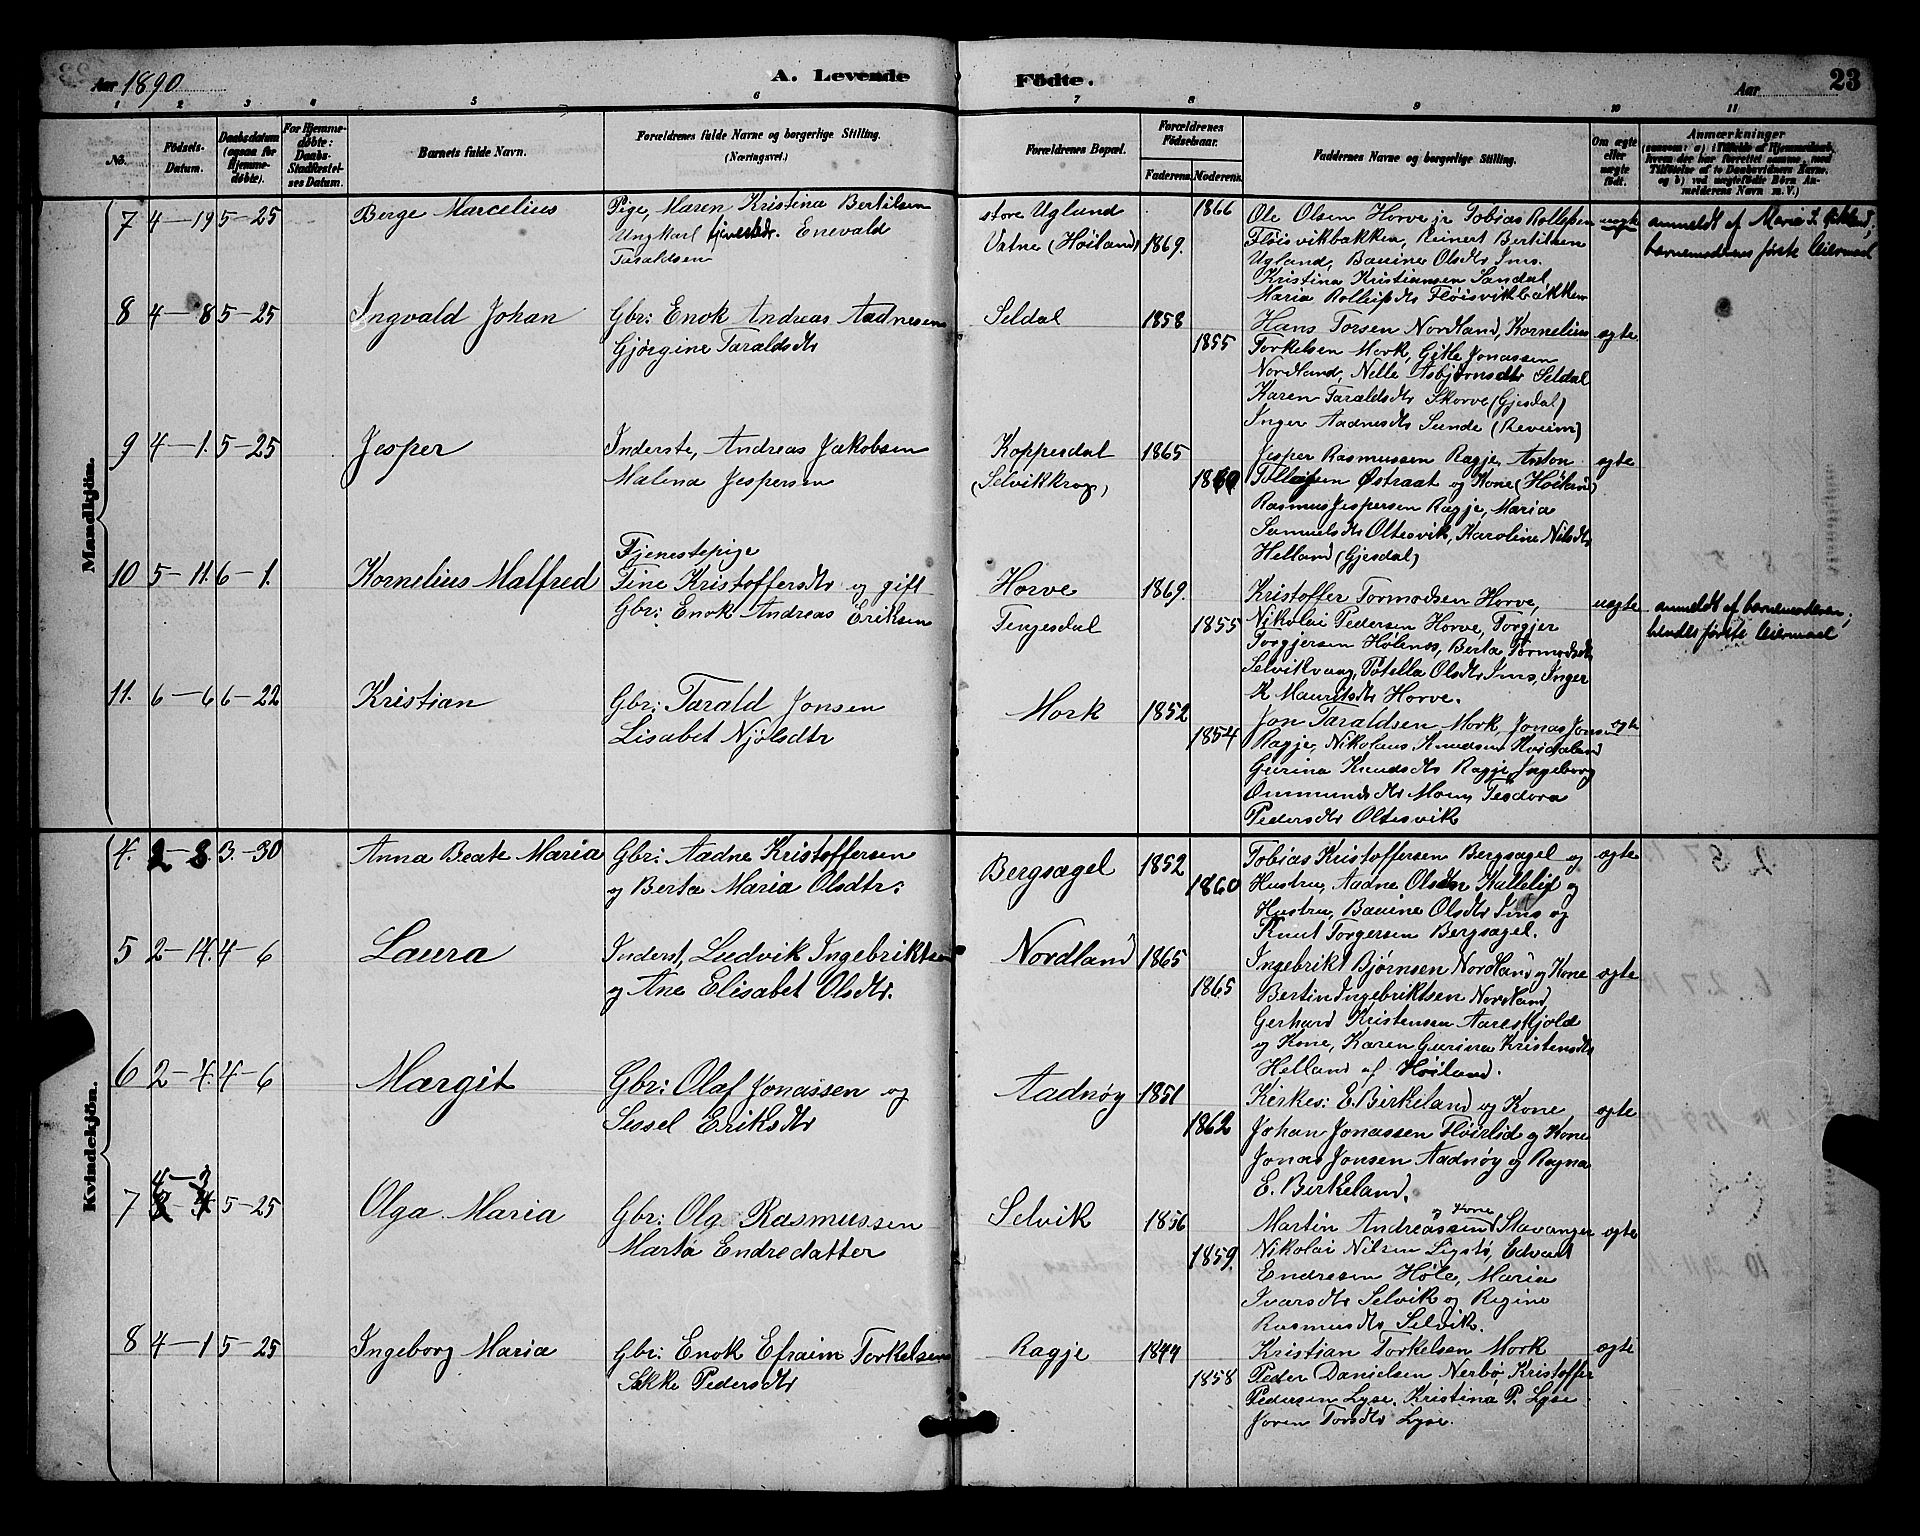 Aar 1890
A. Levende
Födte.
Aar
23
1 2 3 4 5 6 7 8 9 10 11
No.
Födsels-Datum.
Daabsdatum (ogsaa for Hjemmedöbte).
For Hjemmedöbte: Daabs-Stadfæstelses Datum.
Barnets fulde Navn.
Forældrenes fulde Navne og borgerlige Stilling.
(Næringsvei.)
Forældrenes Bopæl.
Forældrenes Födselsaar.
Faderens. Moderens.
Faddernes Navne og borgerlige Stilling.
Om ægte eller uægte födt.
Anmærkninger
Mandkjön.
7 4-19 5-25 Berge Marcelius
Pige, Maren Kristina Bertilsen
Ungkarl Enevald
Taraldsen
store Ugland 1866
Vatne (Höiland) 1869.
Ole Olsen Horve jr Tobias Rolleifsen
Fløisvikbakken, Reinert Bertilsen
Ugland, Bauine Olsdtr Ims
Kristina Kristiansen Sandal
Maria Rolleifsdtr Fløisvikbakken
uægte
anmeldt af Maria
barnemoderens første leiermaal
8 4-8 5-25 Ingvald Johan
Gbr: Enok Andreas Aadnesen
Gjørgine Taraldsdtr
Seldal 1858
1855
Hans Torsen Nordland, Kornelius
Torkelsen Mork, Gitle Jonassen
Nordland, Nelle Asbjørnsdtr Seldal
Karen Taraldsdtr Skorve (Gjesdal)
Inger Aadnesdtr Sunde (Reveim)
ægte
9 4-1. 5-25 Jesper
Inderste, Andreas Jakobsen
Malena Jespersen
Koppesdal 1865
(Selvikkrog)
Jesper Rasmussen Ragje, Anton
Tolleifsen Østraat og Kone (Høiland)
Rasmus Jespersen Ragje, Maria
Samuelsdtr Oltesvik, Karoline Nilsdtr
Helland (Gjesdal)
ægte
10 5-11. 6-1. Kornelius Malfred
Tjenestepige
Tine Kristoffersdtr og gift
Gbr: Enok Andreas Eriksen
Horve 1869.
Tengesdal 1855
Kristoffer Tormodsen Horve,
Nikolai Pedersen Horve, Torgjer
Torgjersen Hølenes, Berta Tormodsdtr
Selvikvaag, Olsdtr Ims, Inger
K Mauritsdtr Horve.
uægte
anmeldt af barnemoderen;
hendes første leiermaal
11. 6-6 6-22 Kristian
Gbr: Tarald Jonsen
Lisabet Njølsdtr
Mork 1852
1854
Jon Taraldsen Mork, Jonas Jonsen
Ragje, Nikolaus Knudsen
Gurina Knudsdtr Ragje, Ingeborg
Ommundsdtr Moen, Teodora
Pedersdtr Oltesvik
ægte
Kvindekjön.
4. 2-3 3-30 Anna Beate Maria
Gbr: Aadne Kristoffersen
og Berta Maria Olsdtr:
Bergsagel 1852
1860
Tobias Kristoffersen Bergsagel og
Hustru, Aadne Olsen Kalleli og
Hustru, Bauine Olsdtr Ims og
Knut Torgersen Bergsagel.
ægte
5 2-14. 4-6 Laura
Inderst, Ludvik Ingebriktsen
og Ane Elisabet Olsdtr.
Nordland 1865
1865
Ingebrikt Bjørnsen Nordland og Kone
Bertin Ingebriktsen Nordland
Gerhard Kristensen Aareskjold
og Kone, Karen Gurina Kristensdtr
Helland af Høiland.
ægte
6 2-4. 4-6 Margit
Gbr: Olaf Jonassen og
Sessel Eriksdtr
Aadnøy 1851
1862
Kirkes: E. Birkeland og Kone,
Johan Jonassen Fløirlid og Kone
Jonas Jonsen Aadnøy og Ragna
E. Birkeland.
ægte
4-3
7 5-25 Olga Maria
Gbr: Ole Rasmussen
Marta Endredatter
Selvik 1856
1859.
og Kone
Martin Andreassen Stavanger
Nikolai Nilsen Ligstø, Edvart
Endresen Høle, Maria
Ivarsdtr Selvik og Regine
Rasmusdtr Selvik.
ægte
8 4-1 5-25 Ingeborg Maria
Gbr: Enok Efraim Torkelsen
Sikke Pedersdtr
Ragje 1849
1858
Kristian Torkelsen Mork
Peder Danielsen Nerbø, Kristoffer
Pedersen Lyse, Kristina P. Lyse
Joren Torsdtr Lyse.
ægte